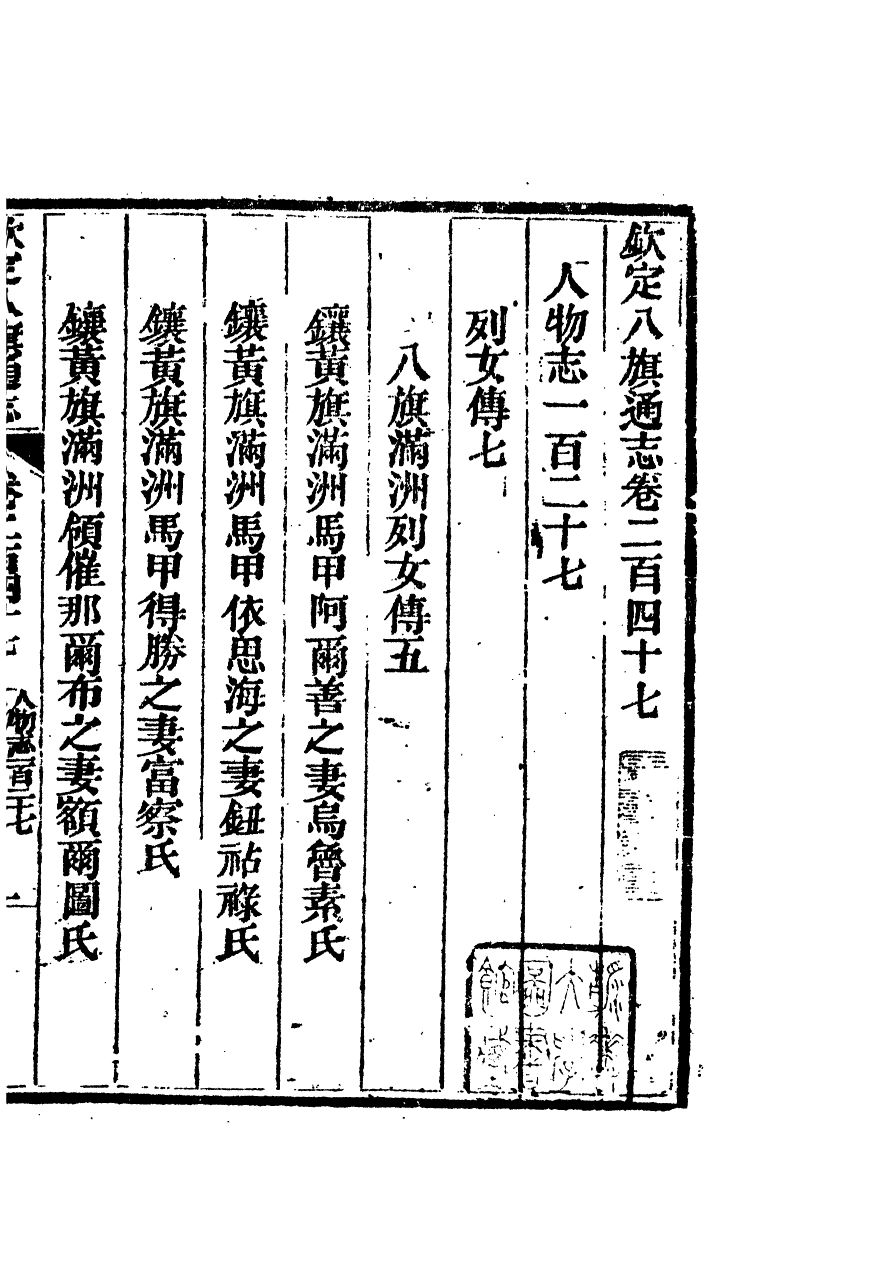 欽定八旗通志卷二百四十七
人物志一百二十七
列女傳七
八旗滿洲列女傳五
鑲黃旗滿洲馬甲阿爾善之妻烏魯素氏
鑲黃旗滿洲馬甲依思海之妻鈕祜祿氏
鑲黃旗滿洲馬甲得勝之妻富察氏
鑲黃旗滿洲領催那爾布之妻額爾圖氏
欽定八旗通志 卷二百四十七 人物志一百二十七 一